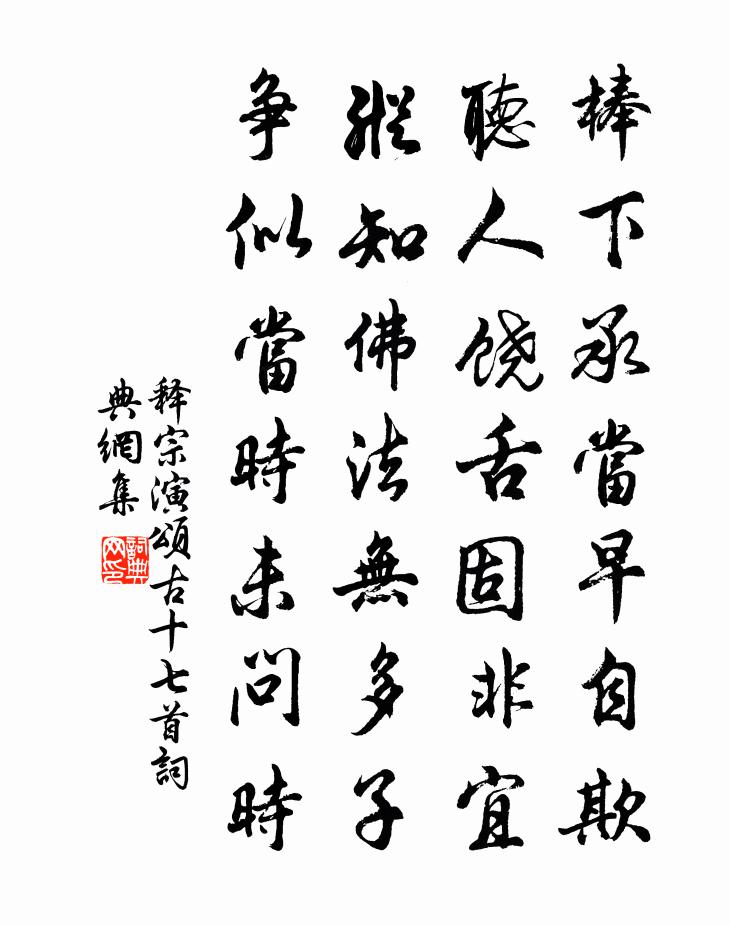 棒下承當早自欺
聽人饶舌固非宜
縱知佛法無多子
争似當時未問時
释宗演頌古十七首詞
典網集
詞典
网印